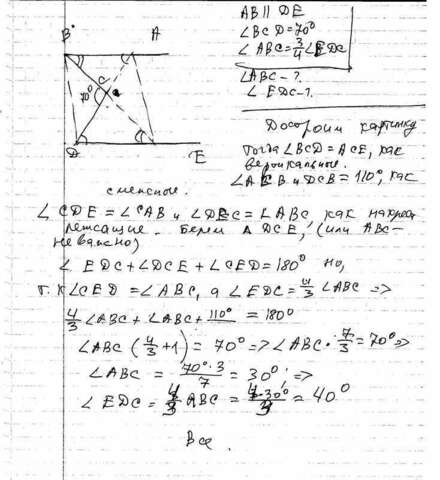 AB ∥ DE
∠BCD=70°
∠ABC=3/4∠EDC
∠ABC-?
∠EDC-?
B A
C
70°
D E
Достроим картинку
тогда ∠BCD=ACE, как
вертикальные.
∠ACB и DCB=110°, как
смежное.
∠CDE=∠CAB и ∠DEC=∠ABC, как накрест
лежащие. Берем Δ DCE, (или ABC-
не важно)
∠EDC+∠DCE+∠CED=180° но,
т.к ∠CED=∠ABC, а ∠EDC=4/3 ∠ABC =>
4/3 ∠ABC+∠ABC+110°=180°
∠ABC (4/3+1)=70° => ∠ABC·7/3=70° =>
∠ABC = 70°·3/7 = 30° ; =>
∠EDC = 4/3 ABC = 4·30°/3 = 40°
Все